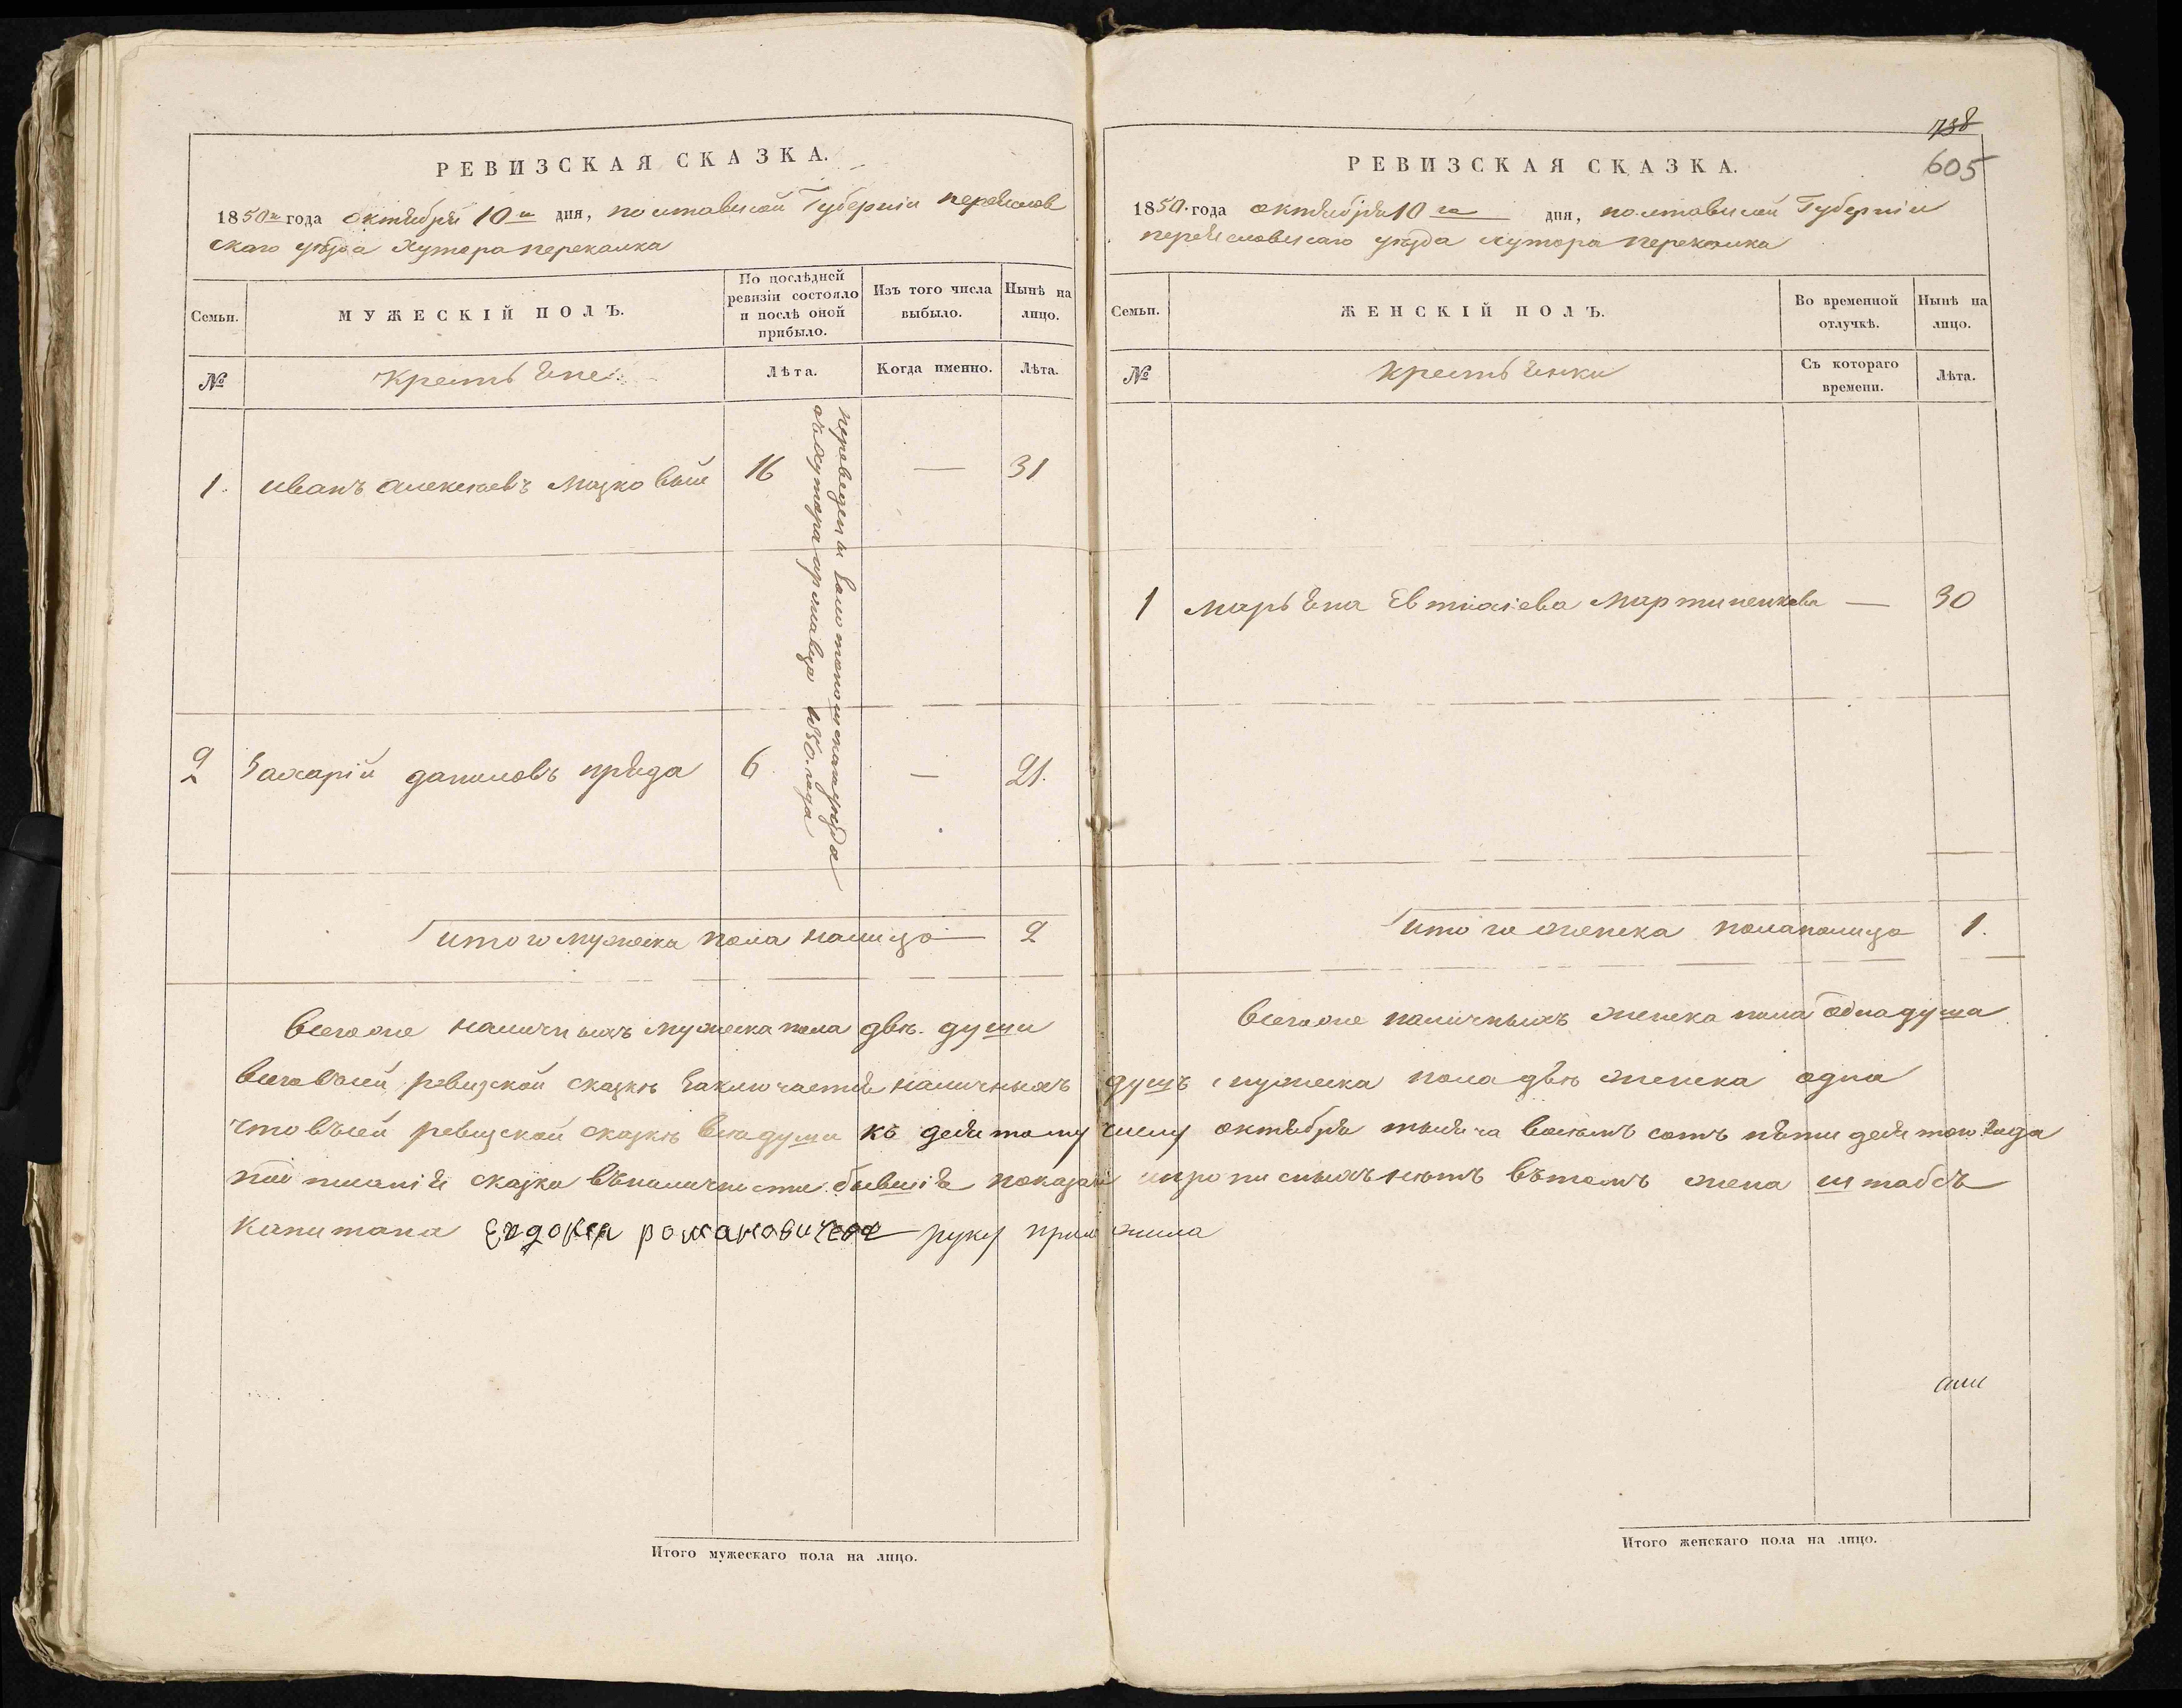 РЕВИЗСКАЯ СКАЗКА.
1850 го года октября 10 го дня, полтавской Губерніи переяслов
скаго уѣзда Хутора перекалка
Семьи.
МУЖЕСКІЙ ПОЛЪ.
По послѣдней ревизіи состояло и послѣ оной прибыло.
Изъ того числа выбыло.
Нынѣ на лицо.
№
Крестьяне.
Лѣта.
Когда именно.
Лѣта.
1. иванъ алексѣевъ мазковый 16 — 31
переведены золотоношскаго уѣзда
2 Захарій даниловъ пряда 6 — 21.
итого мужеска пола налицо — 2
всегоже наличныхъ мужеска пола двѣ души
738
605
РЕВИЗСКАЯ СКАЗКА.
1850 года октября 10 го дня, полтавской Губерніи
переясловскаго уѣзда хутора перекалка
Семьи.
ЖЕНСКІЙ ПОЛЪ.
Во временной отлучкѣ.
Нынѣ на лицо.
№
крестьянки
Съ котораго времени.
Лѣта.
1 марьяна Евтихіева мартиненкова — 30
итого женска пола налицо 1.
всегоже наличныхъ женска пола одна душа
всего въсей ревизской сказкѣ заключается наличныхъ душъ мужеска пола двѣ женска одна
что въсей ревизской сказкѣ всѣ души къ десятому числу октября тысяча восемъ сотъ пятидесятого года
написанія сказки въналичности бывшія показаны ипрописныхъ нѣтъ вътомъ жена штабсъ
капитана Евдокия романовичева руку приложила
Итого мужескаго пола на лицо.
Итого женскаго пола на лицо.